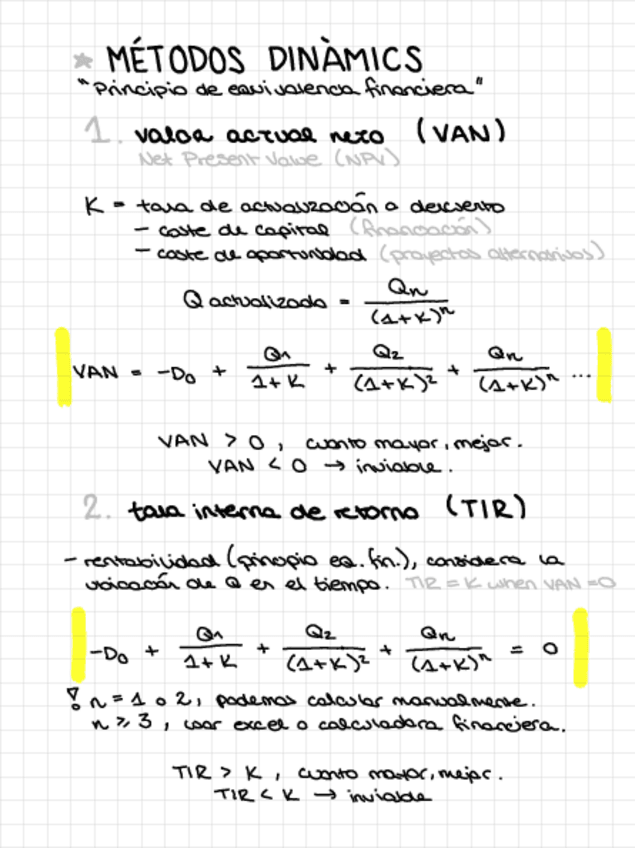 * MÉTODOS DINÀMICS
"Principio de equivalencia financiera"
1. valor actual neto (VAN)
Net Present Value (NPV)
K = tasa de actualización o descuento
- coste de capital (financiación)
- coste de oportunidad (proyectos alternativos)
Q actualizado = Qn / (1+K)^n
VAN = -D0 + Q1 / 1+K + Q2 / (1+K)^2 + Qn / (1+K)^n ...
VAN > 0, cuanto mayor, mejor.
VAN < 0 → inviable.
2. tasa interna de retorno (TIR)
- rentabilidad (pinopio eq. fin.), considera la
ubicación de Q en el tiempo. TIR = K when VAN = 0
-D0 + Q1 / 1+K + Q2 / (1+K)^2 + Qn / (1+K)^n = 0
! n = 1 o 2, podemos calcular manualmente.
n ≥ 3, usar excel o calculadora financiera.
TIR > K, cuanto mayor, mejor.
TIR < K → inviable